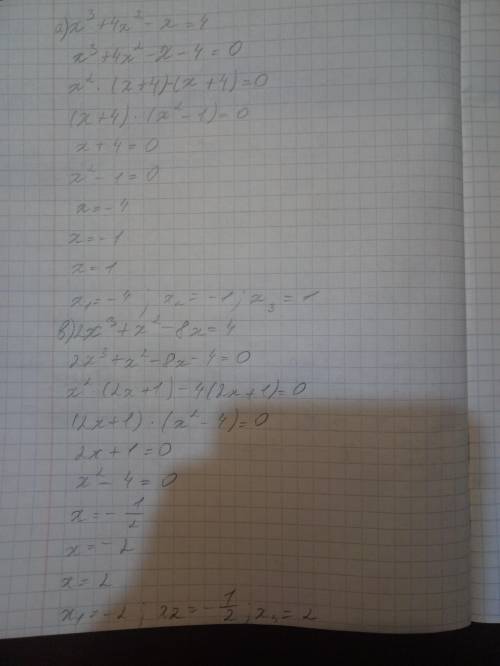 а) x³+4x²-x=4
x³+4x²-x-4=0
x²·(x+4)-(x+4)=0
(x+4)·(x²-1)=0
x+4=0
x²-1=0
x=-4
x=-1
x=1
x₁=-4; x₂=-1; x₃=1
в) 2x³+x²-8x=4
2x³+x²-8x-4=0
x²·(2x+1)-4(2x+1)=0
(2x+1)·(x²-4)=0
2x+1=0
x²-4=0
x=-1/2
x=-2
x=2
x₁=-2; x2=-1/2; x₃=2